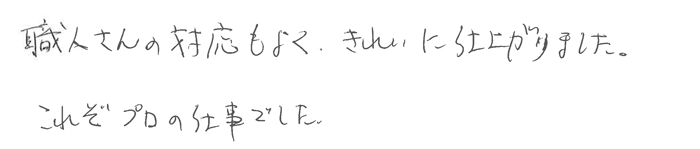 職人さんの対応もよく、きれいに仕上がりました。
これぞプロの仕事でした。